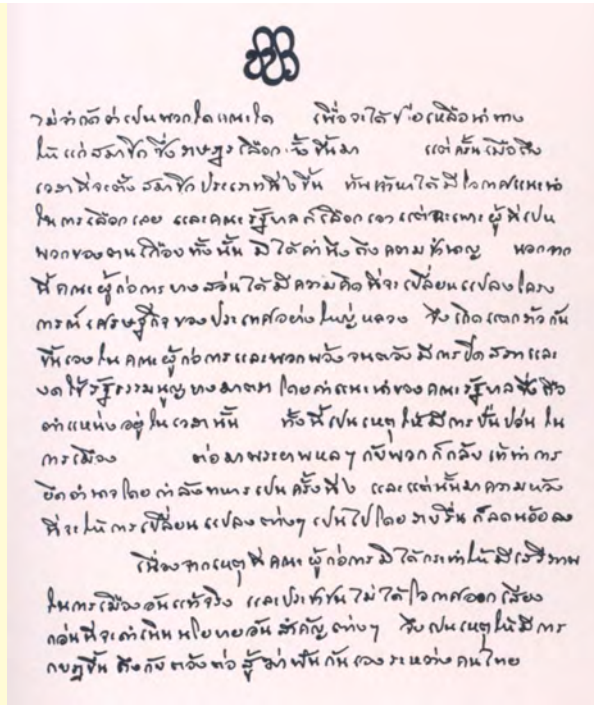 ไม่จำกัดว่าเป็นพวกใดคณะใด เพื่อจะได้ช่วยเหลือนำทาง
ให้แก่สมาชิกซึ่งราษฎรเลือกตั้งขึ้นมา แต่ครั้นเมื่อถึง
เวลาที่จะตั้งสมาชิกประเภทที่ ๒ ขึ้น ข้าพเจ้าหาได้มีโอกาศแนะนำ
ในการเลือกเลย และคณะรัฐบาลก็เลือกเอาแต่ฉะเพาะผู้ที่เป็น
พวกของตนเกือบทั้งนั้น มิได้คำนึงถึงความชำนาญ นอกจาก
นี้คณะผู้ก่อการบางส่วนได้มีความคิดที่จะเปลี่ยนแปลงโครง
การณ์เศรษฐกิจของประเทศอย่างใหญ่หลวง จึงเกิดแตกร้าวกัน
ขึ้นเองในคณะผู้ก่อการและพวกพ้อง จนต้องมีการปิดสภาและ
งดใช้รัฐธรรมนูญบางมาตรา โดยคำแนะนำของคณะรัฐบาลซึ่งถือ
ตำแหน่งอยู่ในเวลานั้น ทั้งนี้เป็นเหตุให้มีการปั่นป่วนใน
การเมือง ต่อมาพระยาพหลฯ กับพวกก็กลับเข้าทำการ
ยึดอำนาจโดยกำลังทหารเป็นครั้งที่ ๒ และแต่นั้นมาความหวัง
ที่จะให้การเปลี่ยนแปลงต่างๆ เป็นไปโดยราบรื่นก็ลดน้อยลง
เนื่องจากเหตุที่คณะผู้ก่อการมิได้กระทำให้มีเสรีภาพ
ในการเมืองอันแท้จริง และประชาชนไม่ได้โอกาศออกเสียง
ก่อนที่จะดำเนินนโยบายอันสำคัญต่างๆ จึงเป็นเหตุให้มีการ
กบฏขึ้น ถึงกับต้องต่อสู้ฆ่าฟันกันเองระหว่างคนไทย